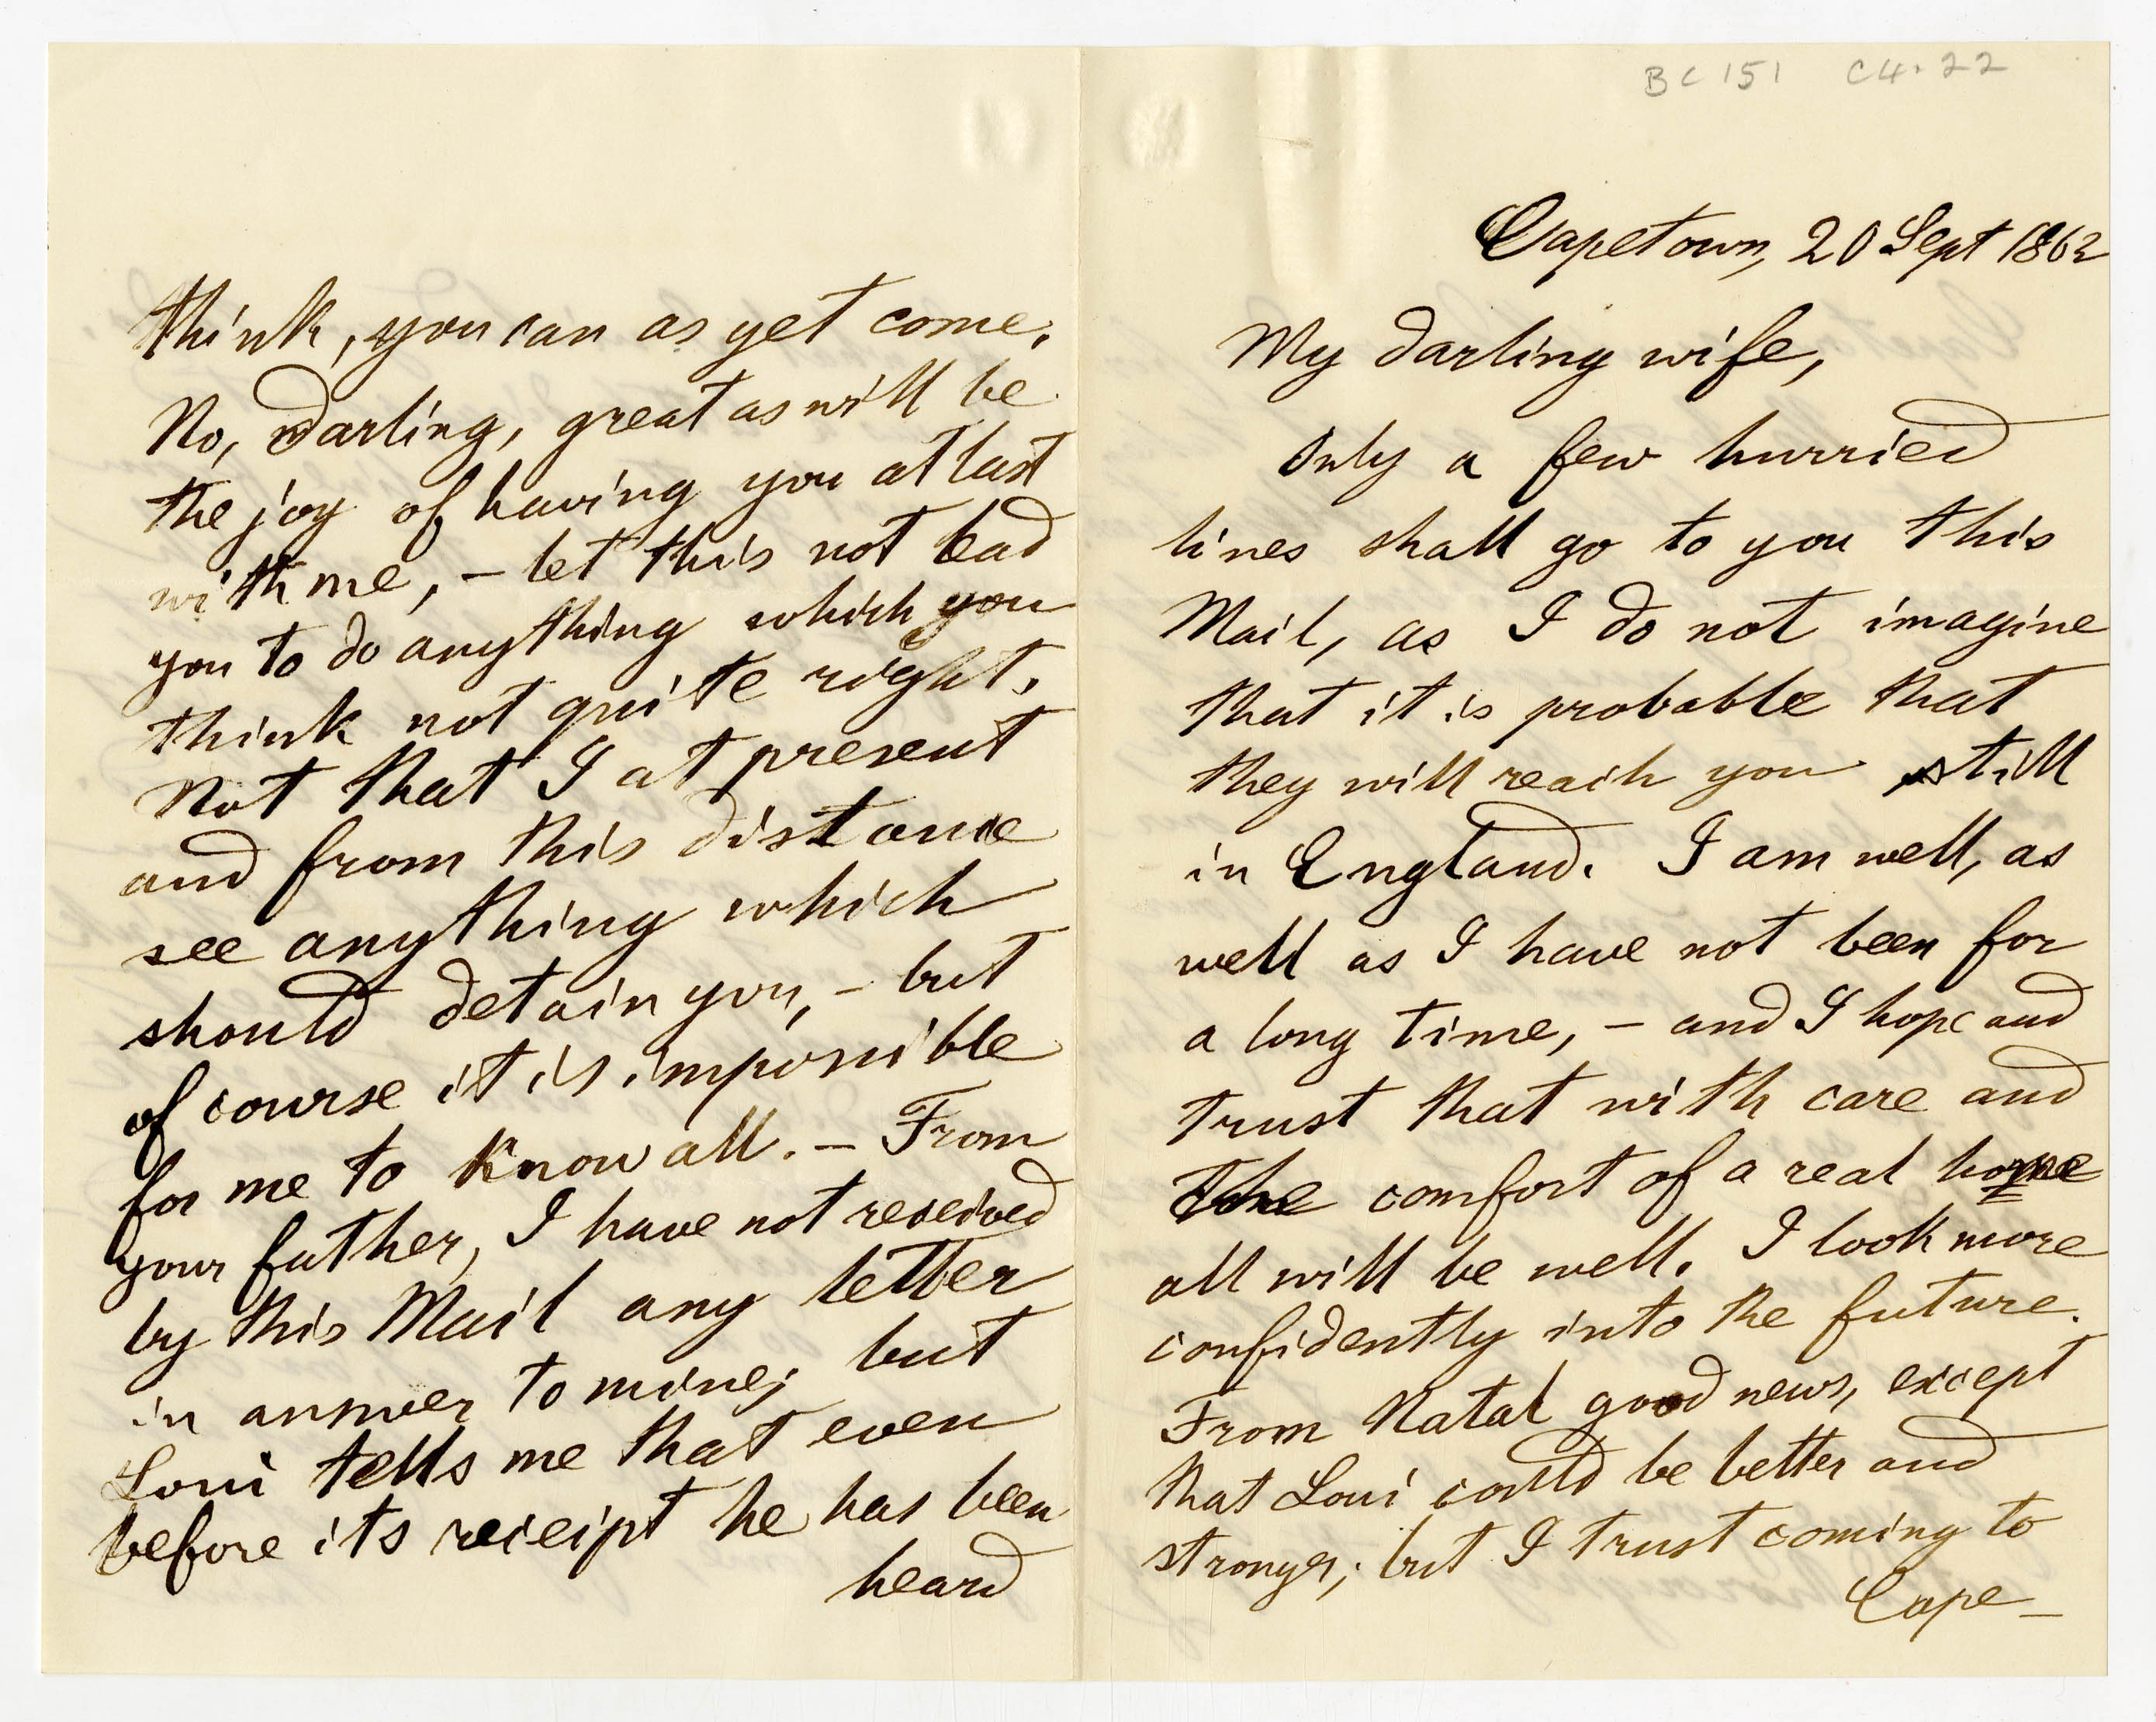 BC 151 C4.22
Capetown, 20 Sept 1862
My darling wife,
Only a few hurried
lines shall go to you this
Mail, as I do not imagine
that it is probable that
they will reach you still
in England. I am well, as
well as I have not been for
a long time, – and I hope and
trust that with care and
the comfort of a real home
all will be well. I look more
confidently into the future.
From Natal good news, except
that Loui could be better and
stronger; but I trust coming to
Cape–
think, you can as yet come.
No, darling, great as will be
the joy of having you at last
with me, – let this not lead
you to do anything which you
think not quite right.
Not that I at present
and from this distance
see anything which
should detain you, – but
of course it is impossible
for me to know all. – From
your father, I have not received
by this Mail any letter
in answer to mine; but
Loui tells me that even
before its receipt he has been
heard